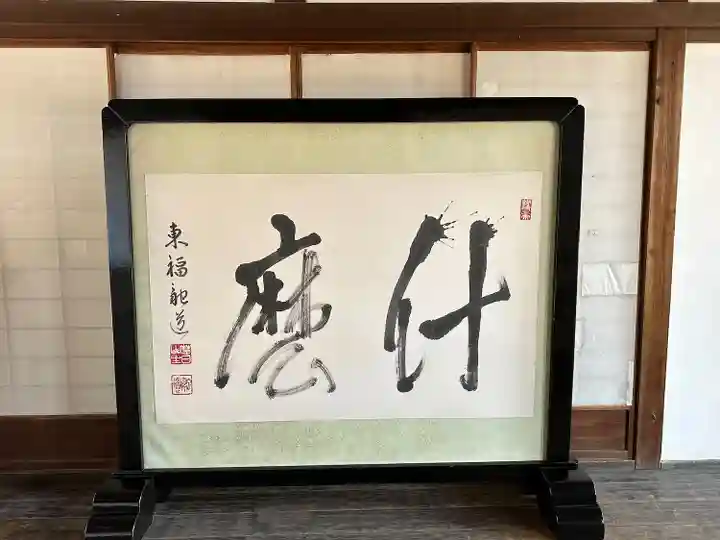 什麼
東福
道